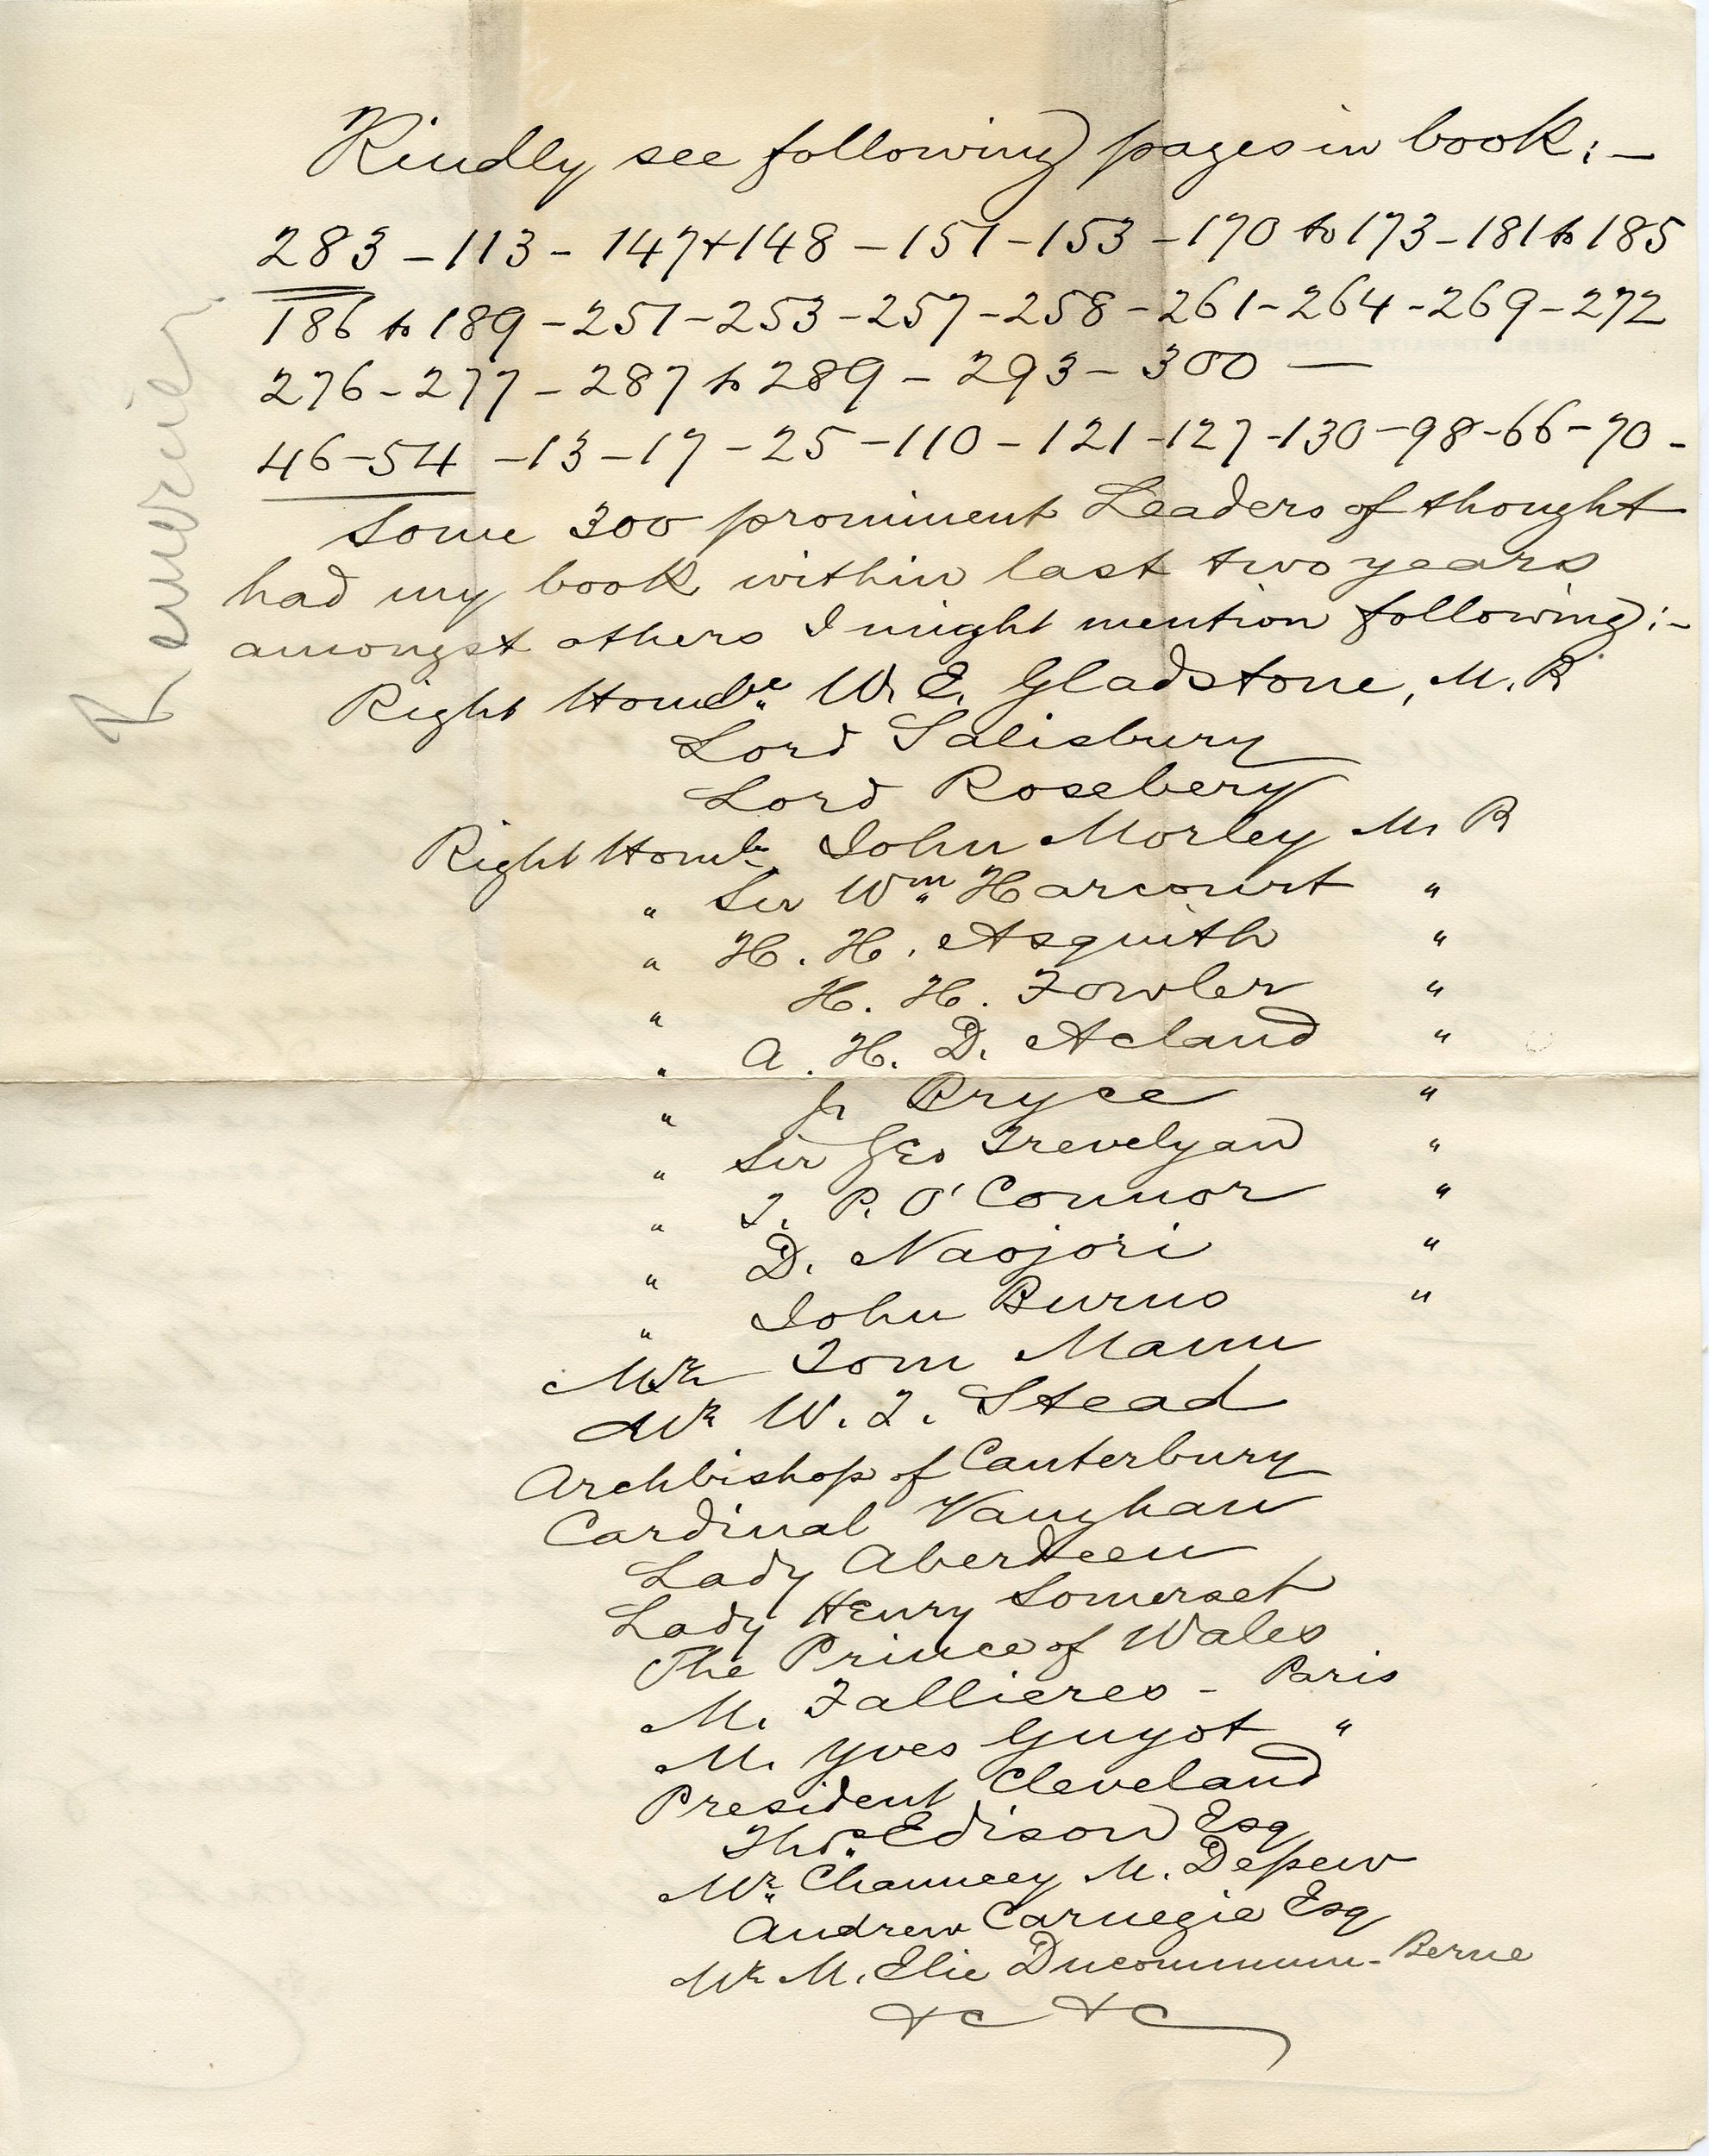 Kindly see following pages in book:—
283 — 113 — 147+148 — 151 — 153 — 170 to 173 — 181 to 185
186 to 189 — 251 — 253 — 257 — 258 — 261 — 264 — 269 — 272
276 — 277 — 287 to 289 — 293 — 300 —
46 — 54 — 13 — 17 — 25 — 110 — 121 — 127 — 130 — 98 — 66 — 70 —
Some 300 prominent Leaders of thought
had my book within last two years
amongst others I might mention following:—
Right Honble W. E. Gladstone, M. P.
Lord Salisbury
Lord Rosebery
Right Honble John Morley M. P
" Sir Wm Harcourt "
" H. H. Asquith "
" H. H. Fowler "
" A. H. D. Acland "
" J. Bryce "
" Sir Geo Trevelyan "
" T. P. O'Connor "
" D. Naojori "
" John Burns "
Mr Tom Mann
Mr W. T. Stead
Archbishop of Canterbury
Cardinal Vaughan
Lady Aberdeen
Lady Henry Somerset
The Prince of Wales
M. Fallieres - Paris
M. Yves Guyot "
President Cleveland
Thos Edison Esq
Mr Chauncey M. Depew
Andrew Carnegie Esq
Mr M. Elie Ducommun - Berne
&c &c